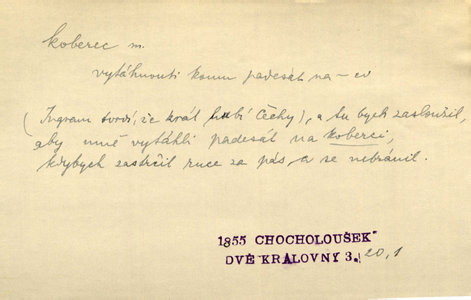 koberec m.
vytáhnouti komu padesát na – ci
(Ingram tvrdí, že král hubí Čechy), a tu bych zasloužil,
aby mně vytáhli padesát na koberci,
kdybych zastrčil ruce za pás, a se nebránil.
1855 CHOCHOLOUŠEK
DVĚ KRÁLOVNY 3. 20,1